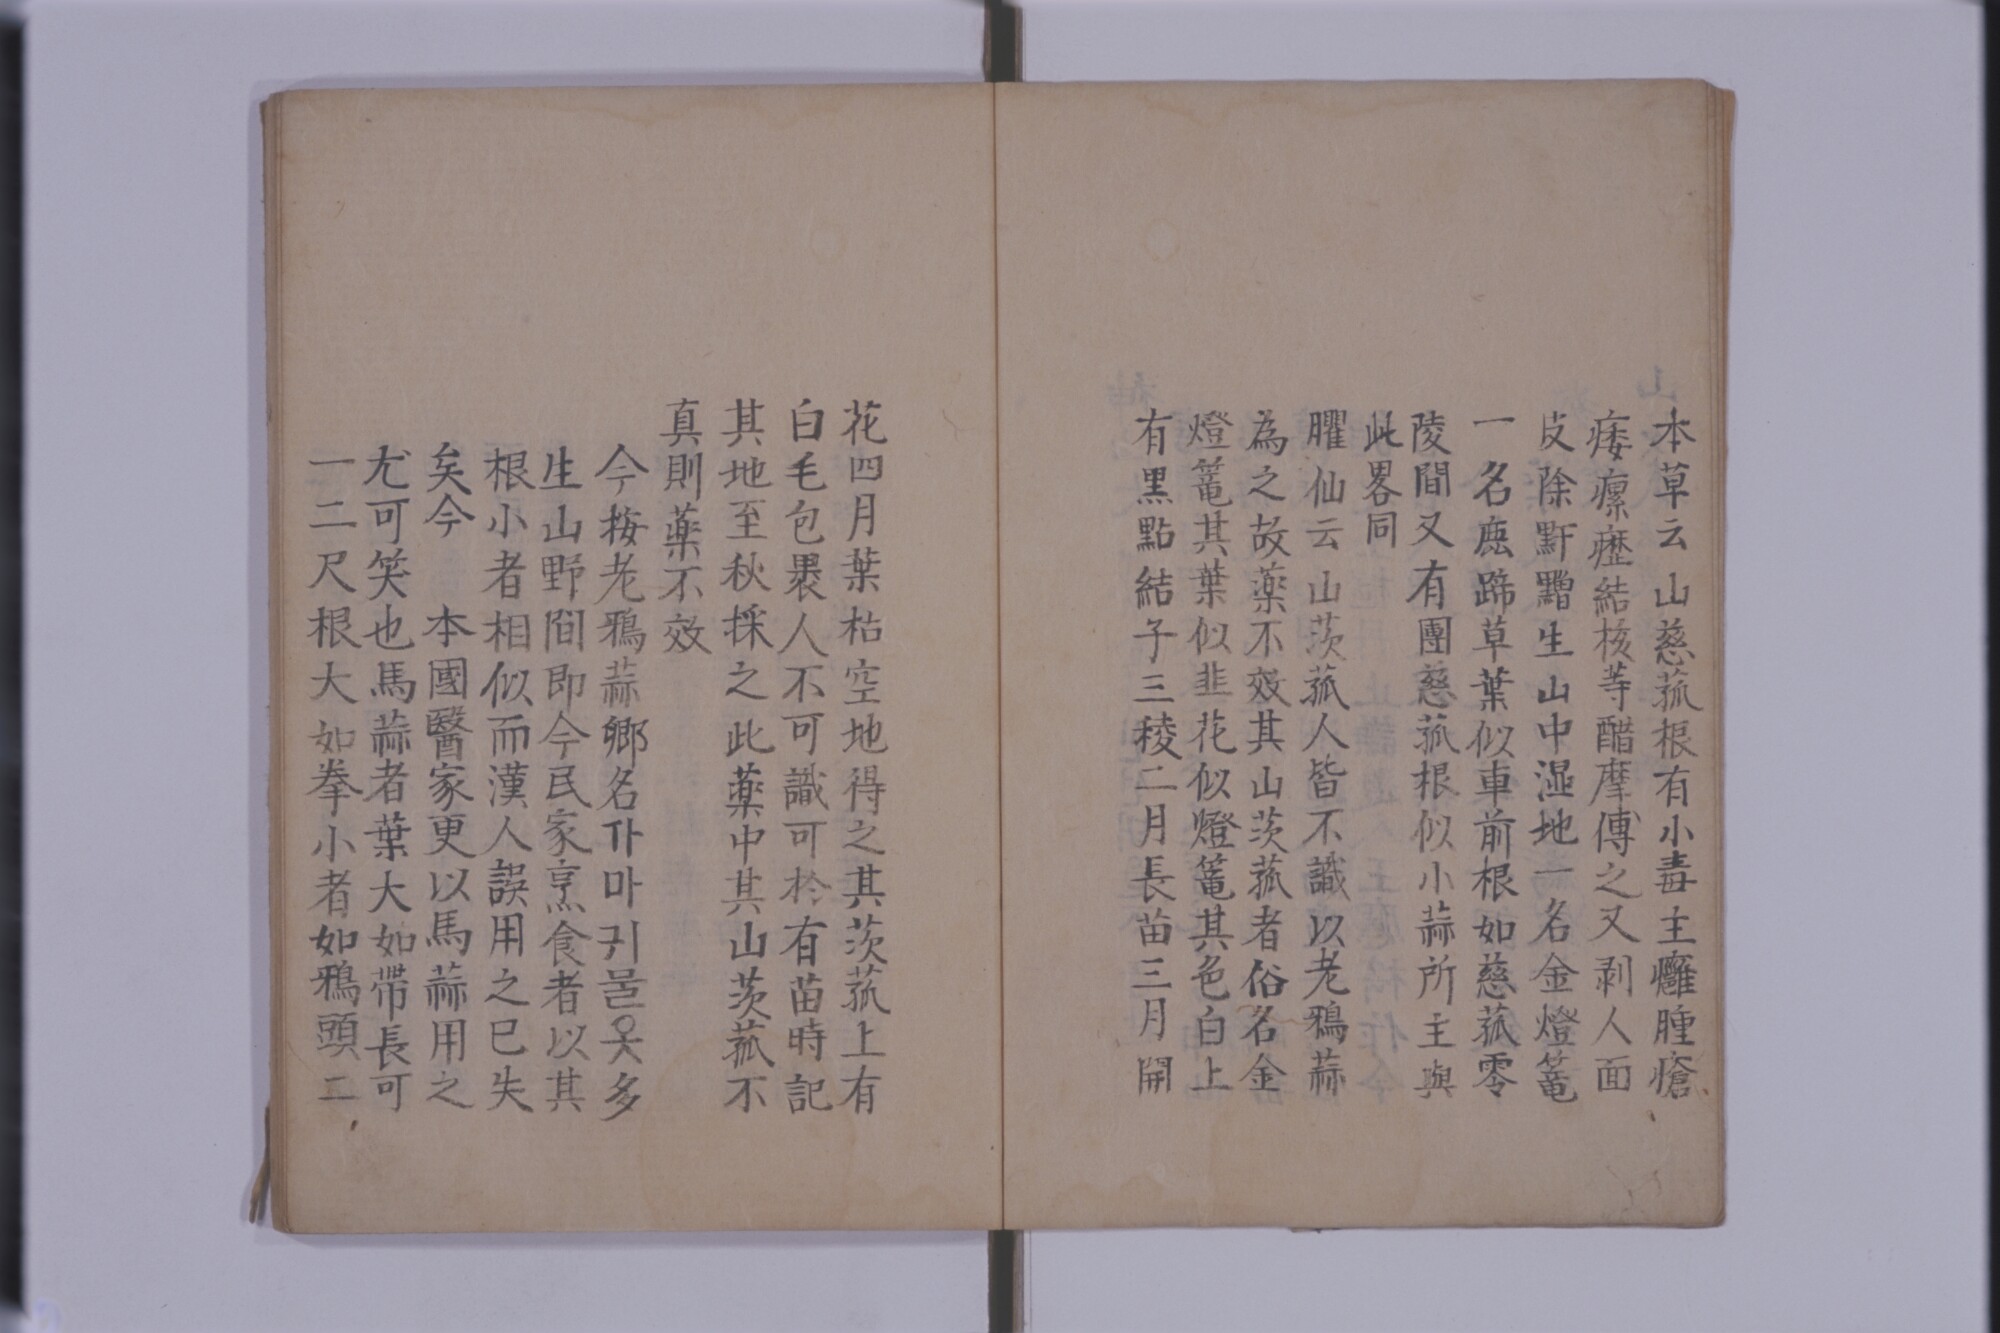 本草云山慈菰根有小毒主癰腫瘡
瘻瘰癧結核等醋摩傅之又剥人面
皮除䵟䵳生山中湿地一名金燈篭
一名鹿蹄草葉似車前根如慈菰零
陵間又有團慈菰根似小蒜所主與
此畧同
臞仙云山茨菰人皆不識以老鴉蒜
為之故薬不效其山茨菰者俗名金
燈篭其葉似韭花似燈篭其色白上
有黒點結子三稜二月長苗三月開
花四月葉枯空地得之其茨菰上有
白毛包裹人不可識可於有苗時記
其地至秋採之此薬中其山茨菰不
真則薬不效
今按老鴉蒜鄉名가마귀물옷多
生山野間即今民家烹食者以其
根小者相似而漢人誤用之已失
矣今 本國醫家更以馬蒜用之
尤可笑也馬蒜者葉大如帶長可
一二尺根大如拳小者如鴉頭二